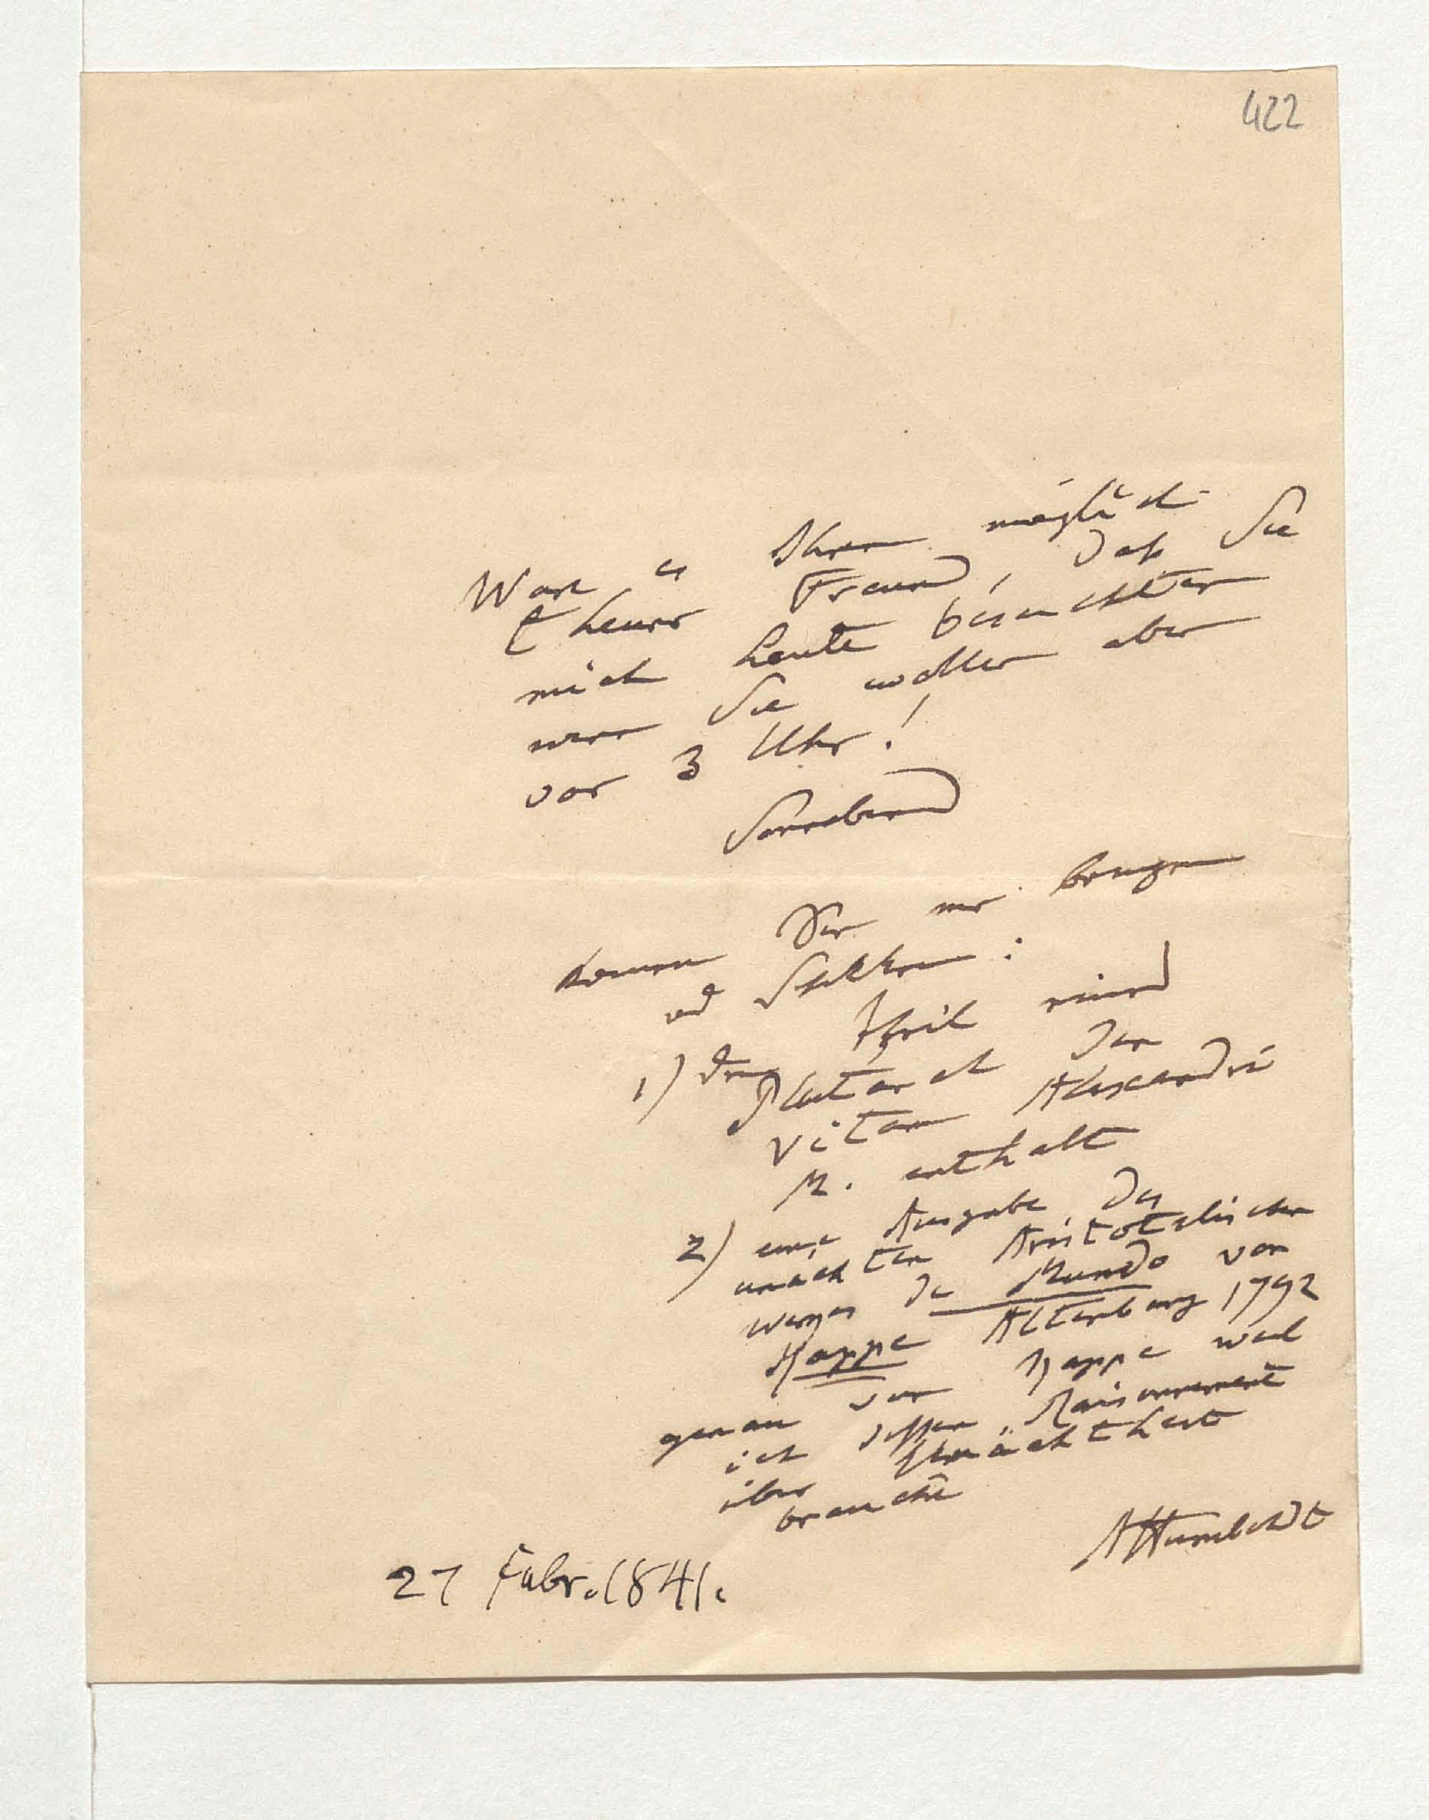 422
Wäre es Ihnen möglich
theurer Freund, daß Sie
mich heute besuchten
wann Sie wollen aber
vor 3 Uhr!
Sonnabend
Können Sie mir bringen
od schikken:
1) den Theil eines
Plutarch der
vitam Alexandri
M. enthält
2) eine Ausgabe des
unächten Aristotelischen
Werkes de Mundo von
Kappe Altenburg 1792
genau von Kappe weil
ich dessen Raisonnement
über Unächtheit
brauche
AHumboldt
27 Febr. 1841.